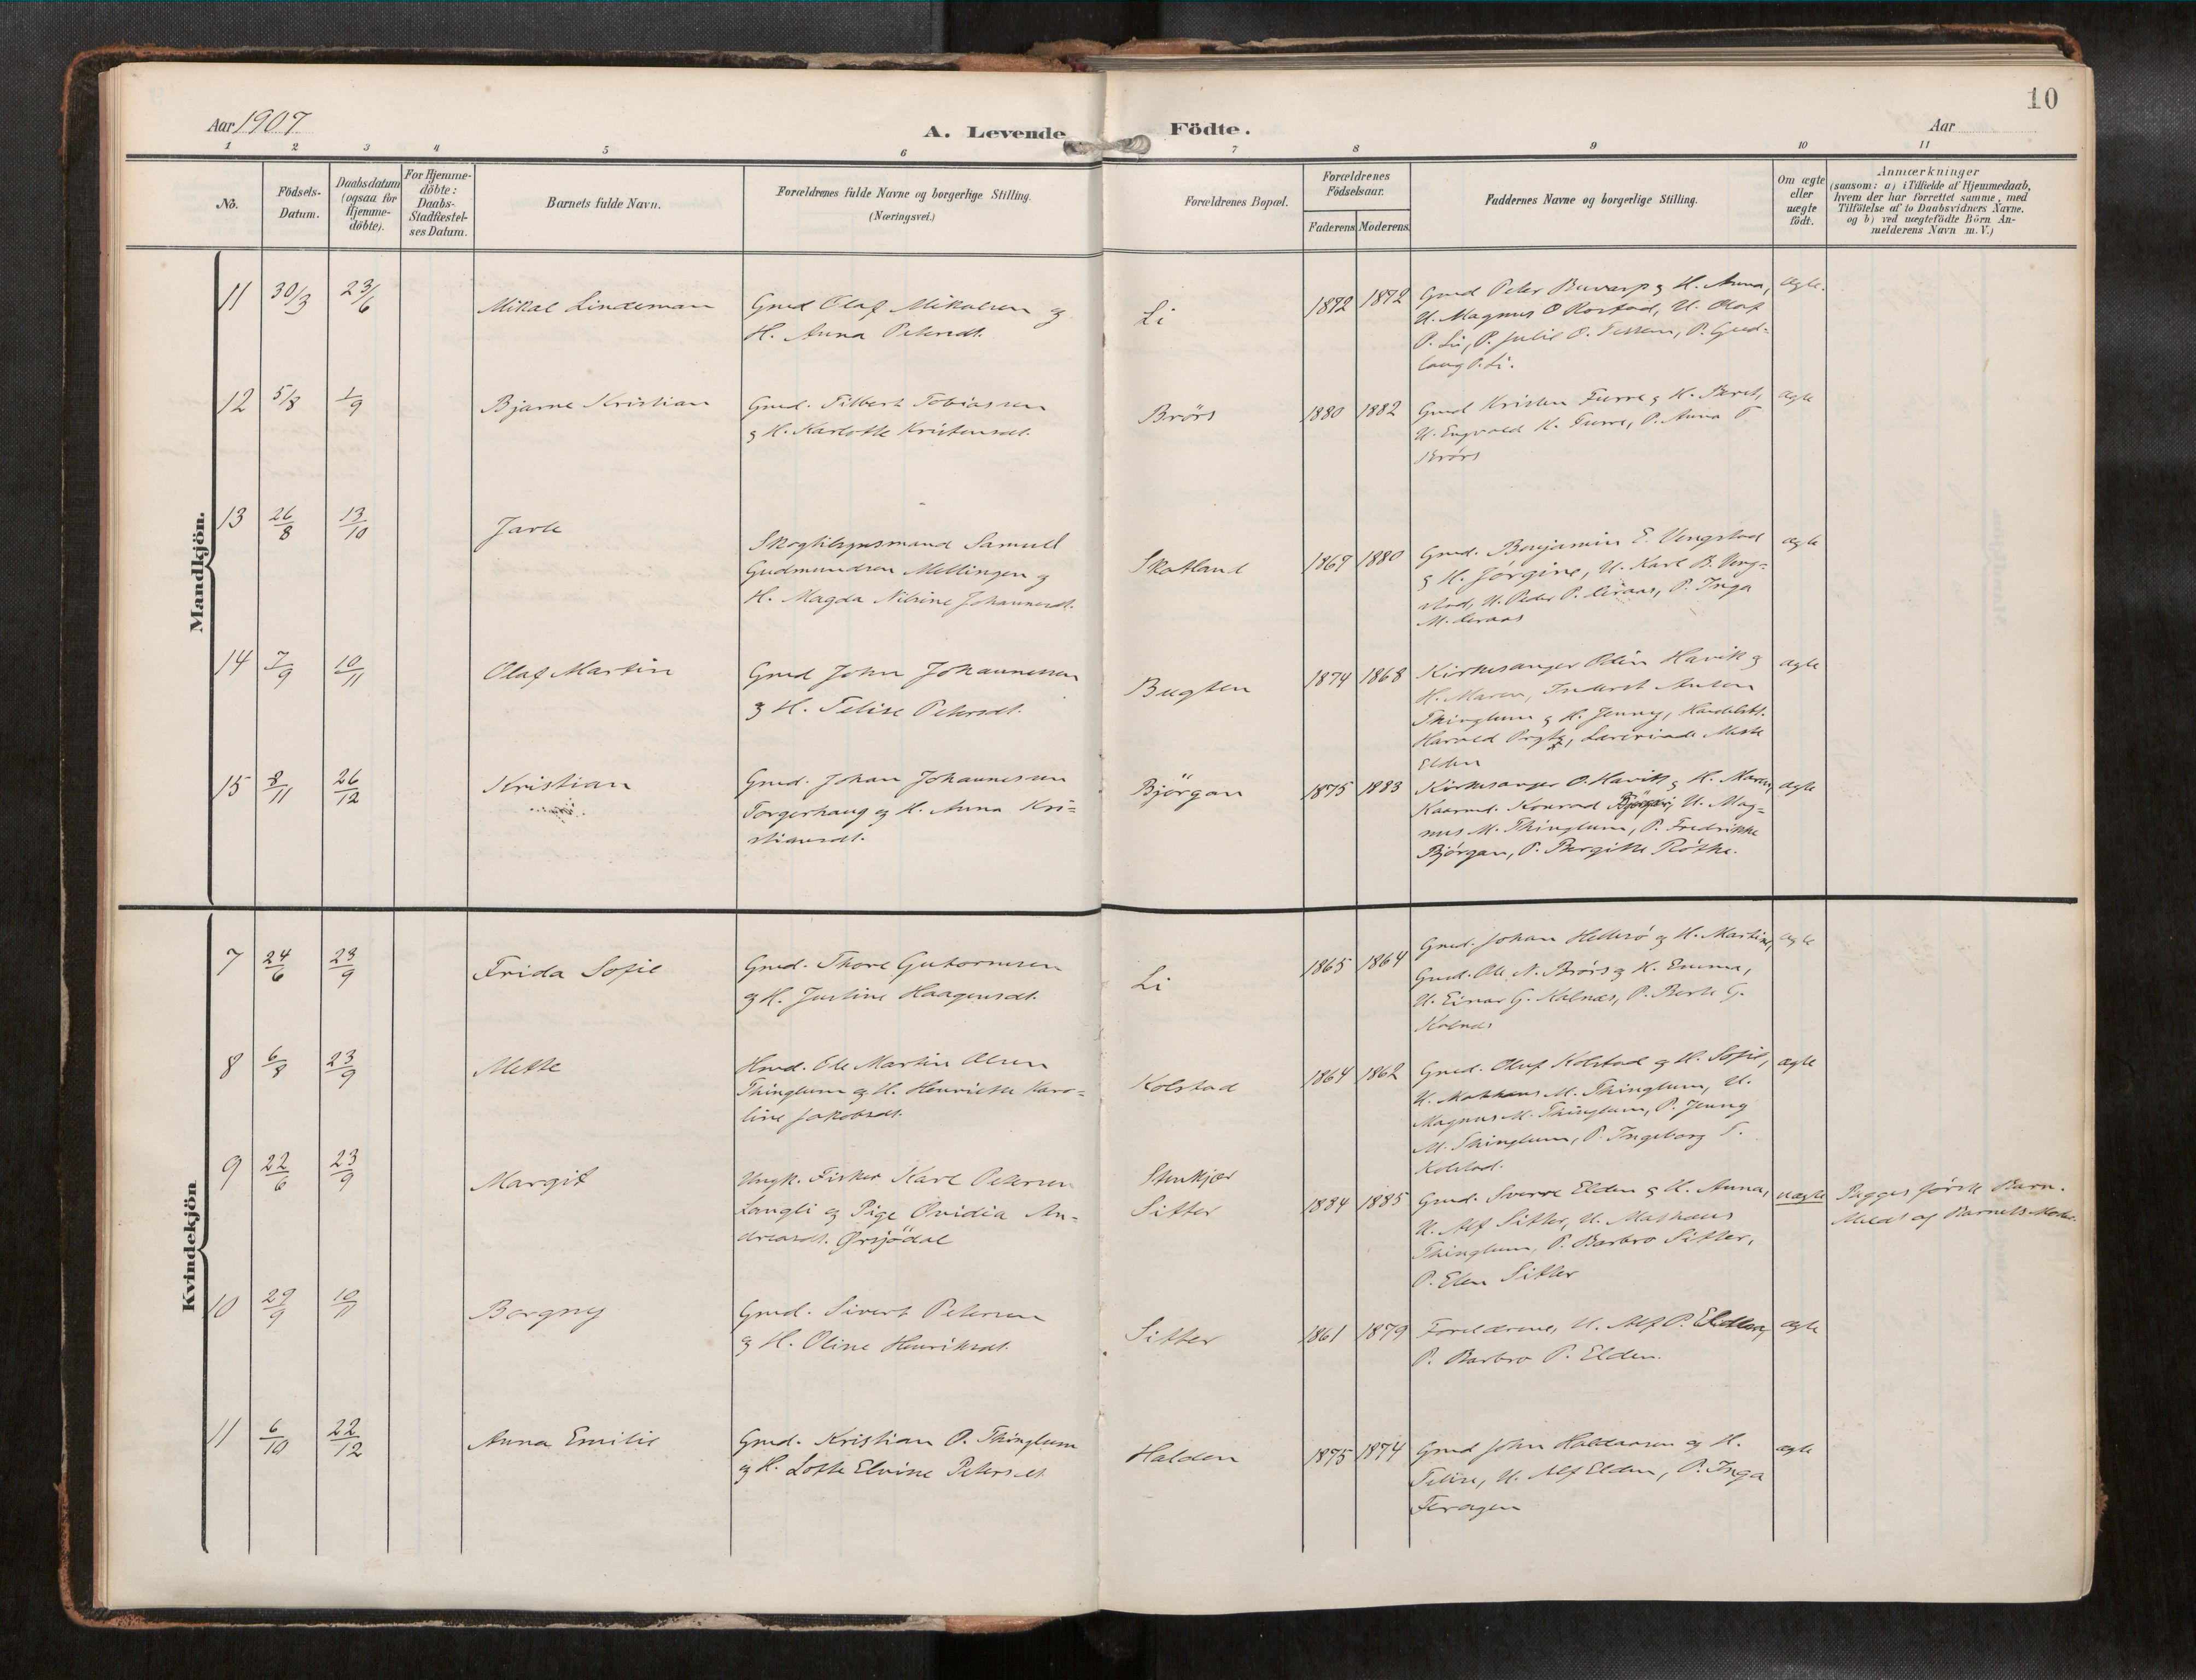 10
Aar 1907
A. Levende Födte.
Aar
1 2 3 4 5 6 7 8 9 10 11
No.
Födsels-
Datum.
Daabsdatum
(ogsaa for
Hjemme-
döbte).
For Hjemme-
döbte:
Daabs-
Stadfæstel-
ses Datum.
Barnets fulde Navn.
Forældrenes fulde Navne og borgerlige Stilling.
(Næringsvei.)
Forældrenes Bopæl.
Forældrenes
Födselsaar.
Faderens. Moderens.
Faddernes Navne og borgerlige Stilling.
Om ægte
eller
uægte
födt.
Anmærkninger
(saasom: a) i Tilfælde af Hjemmedaab,
hvem der har forrettet samme, med
Tilföielse af to Daabsvidners Navne,
og b) ved uægtefödte Börn An-
melderens Navn m.V.)
Mandkjön.
11 30/3 23/6 Mikal Lindeman
Gmd Olaf Mikalsen og
H. Anna Petersdt.
Li 1872 1872
Gmd Peter Buvarp og H. Anna,
U. Magnus O Rostad, U. Olaf
P. Li, P. Julie O. , P. Gud-
laug P. Li.
ægte.
12 5/8 1/9 Bjarne Kristian
Gmd. Tilbert Tobiassen
og H. Karlotte Kristensdt.
Brörs 1880 1882
Gmd Kristen Furre og H. Beret,
U. Engvald K. Furre, P. Anna T
Brörs
ægte
13 26/8 13/10 Jarle
Skogtilsynsmand Samuel
Gudmundsen Mellingen og
H. Magda Nilsine Johannesdt.
Skatland 1869 1880
Gmd. Benjamin E. Vengstad
og H. Jörgine, U. Karl B. Veng-
stad, U. Peder P. Aeraas, P. Inga
M. Aeraas
ægte
14 7/9 10/11 Olaf Martin
Gmd John Johannessen
og H. Felise Petersdt.
Bugten 1874 1868
Kirkesanger Odin Havik og
H. Maren, Anton
Thinglum og H. Jenny, Handelsbt.
Harald , Lærerinde Mette
Elden
ægte
15 8/11 26/12 Kristian
Gmd. Johan Johannesen
Torgerhaug og H. Anna Kri-
stiansdt.
Björgan 1875 1883
Kirkesanger O. Havik og H. Maren,
Kaarmd. Konrad Björgan, U. Mag-
nus M. Thinglum, P. Fredrikke
Björgan, P. Bergitte Röthe.
ægte
Kvindekjön
7 24/6 23/9 Frida Sofie
Gmd. Thore Gutormsen
og H. Justine Haagensdt.
Li 1865 1864
Gmd. Johan Hellesö og H. Martine,
Gmd. Ole N. Brörs og H. Emma,
U. Einar G. Kalnæs, P. Berte G.
Kalnæs
ægte
8 6/8 23/9 Mette
Hmd. Ole Martin Olsen
Thinglum og H. Henriette Karo-
line Jakobsdt.
Kolstad 1864 1862
Gmd. Oluf Kolstad og H. Sofie,
U. Mathæus M. Thinglum, U.
Magnus M. Thinglum, P. Jenny
M. Thinglum, P. Ingeborg T.
Kolstad.
ægte
9 22/6 23/9 Margit
Ungk. Fisker Karl Petersen
Langli og Pige Ovidia An-
dreasdt. Örsjödal
Stenkjær
Sitter 1884 1885
Gmd. Sverre Elden og H. Anna,
U. Alf Sitter, U. Mathæus
Thinglum, P. Barbro Sitter,
P. Elen Sitter
uægte
Begges förste Barn.
Meldt af Barnets Moder.
10 29/9 10/11 Borgny
Gmd. Sivert Petersen
og H. Oline Henriksdt.
Sitter 1861 1879
Foreldrene, U. Alf P. Elden,
P. Barbro P. Elden.
ægte
11 6/10 22/12 Anna Emilie
Gmd. Kristian O. Thinglum
og H. Lotte Elvine Petersdt
Halden 1875 1874
Gmd John Haldaasen og H.
Felise, U. Alf Elden, P. Inga
Feragen
ægte